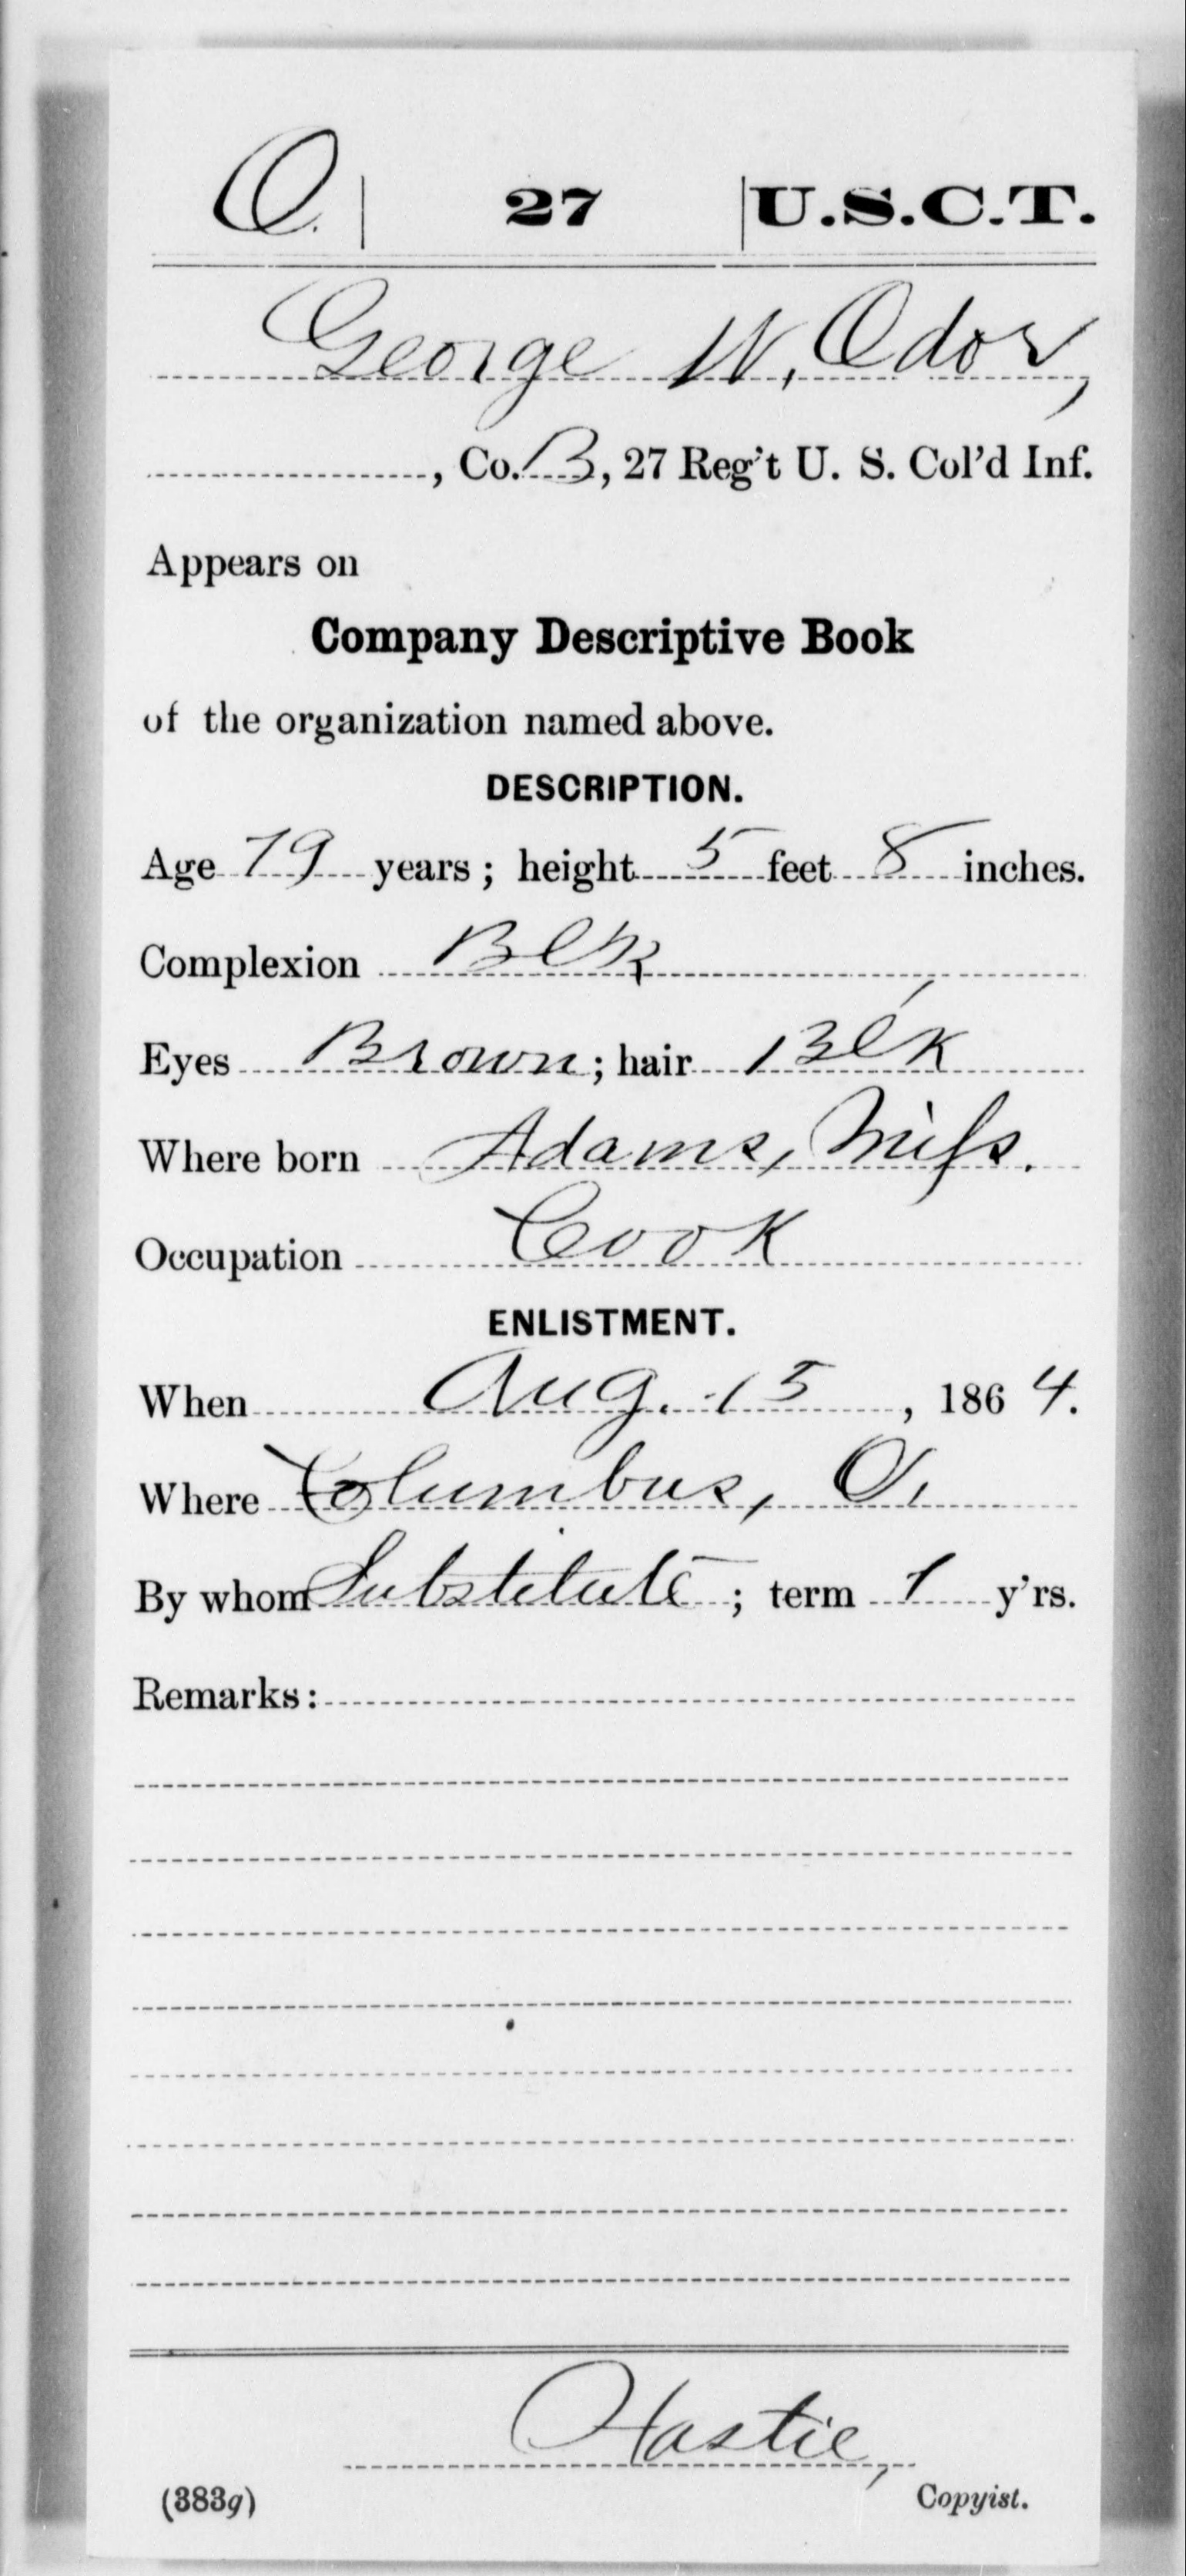 O. 27 U.S.C.T.
George W. Odor,
, Co. B, 27 Reg't U. S. Col'd Inf.
Appears on
Company Descriptive Book
of the organization named above.
DESCRIPTION.
Age 19 years; height 5 feet 8 inches.
Complexion Blk
Eyes Brown; hair Blk
Where born Adams, Miss.
Occupation Cook
ENLISTMENT.
When Aug. 15, 1864.
Where Columbus, O.
By whom Substitute; term 1 y'rs.
Remarks:
Hastie,
(383g) Copyist.